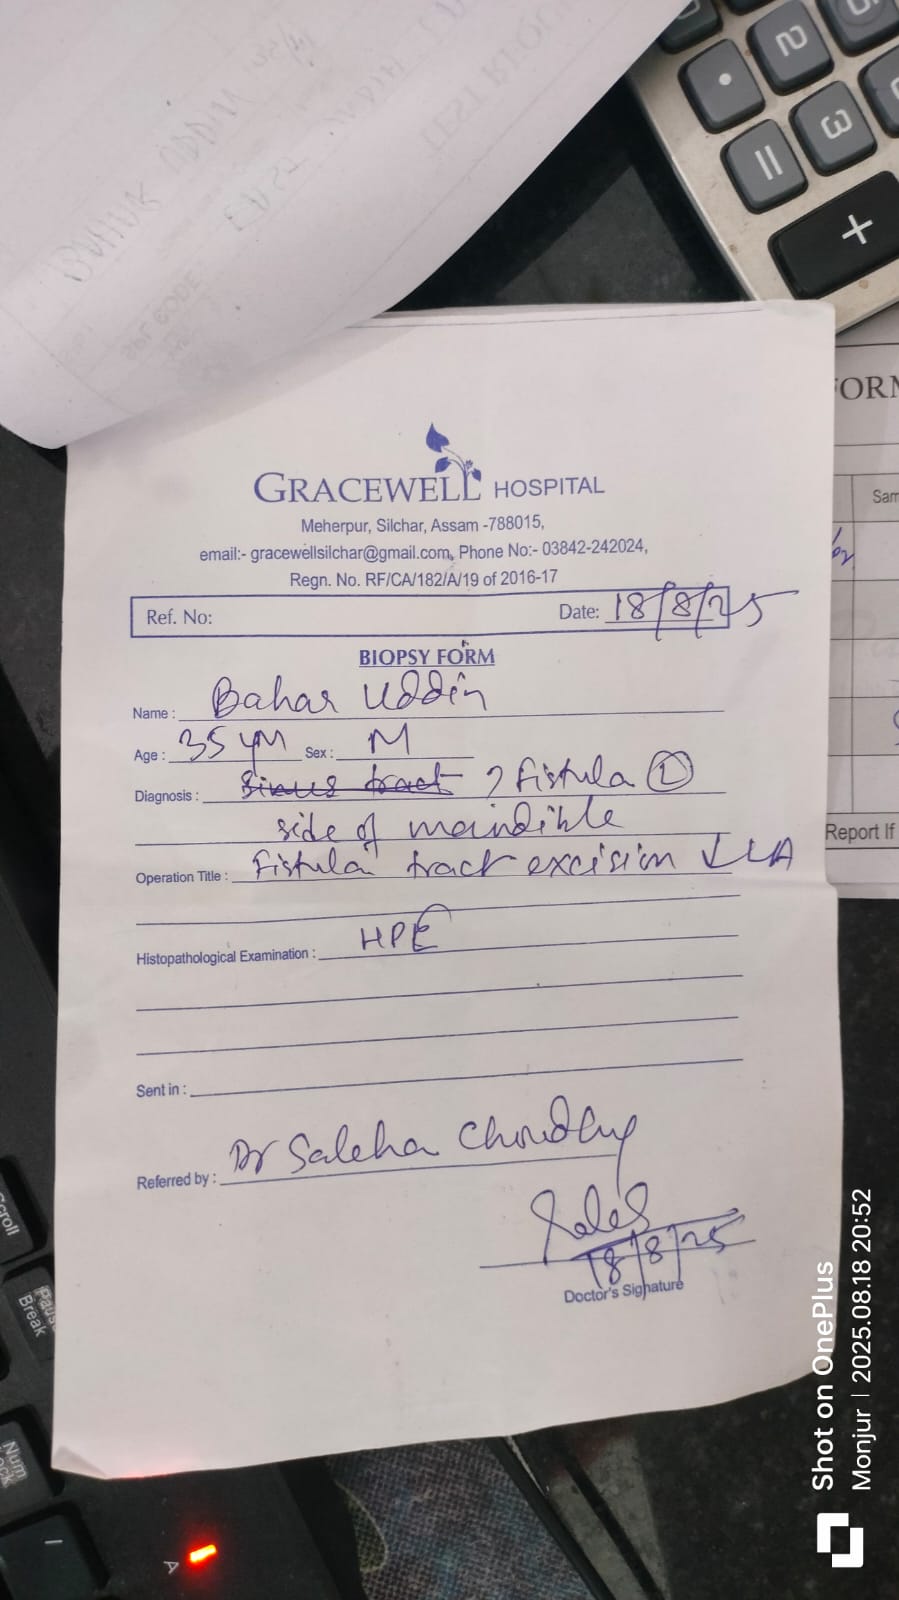 2
3
=
+
GRACEWELL HOSPITAL
Meherpur, Silchar, Assam -788015,
email:- gracewellsilchar@gmail.com, Phone No:- 03842-242024,
Regn. No. RF/CA/182/A/19 of 2016-17
Ref. No: Date: 18/8/25
BIOPSY FORM
Name : Bahar Uddin
Age : 35 Sex : M
Diagnosis : Sinus tract ? Fistula Ⓛ
side of mandible
Operation Title : Fistula tract excision LA
Histopathological Examination : HPE
Sent in :
Referred by : Dr Saleha Choudhury
18/8/25
Doctor's Signature
FORM
Sam
Report If
Scroll
Pause
Break
Num
Lock
A
Shot on OnePlus
Monjur | 2025.08.18 20:52